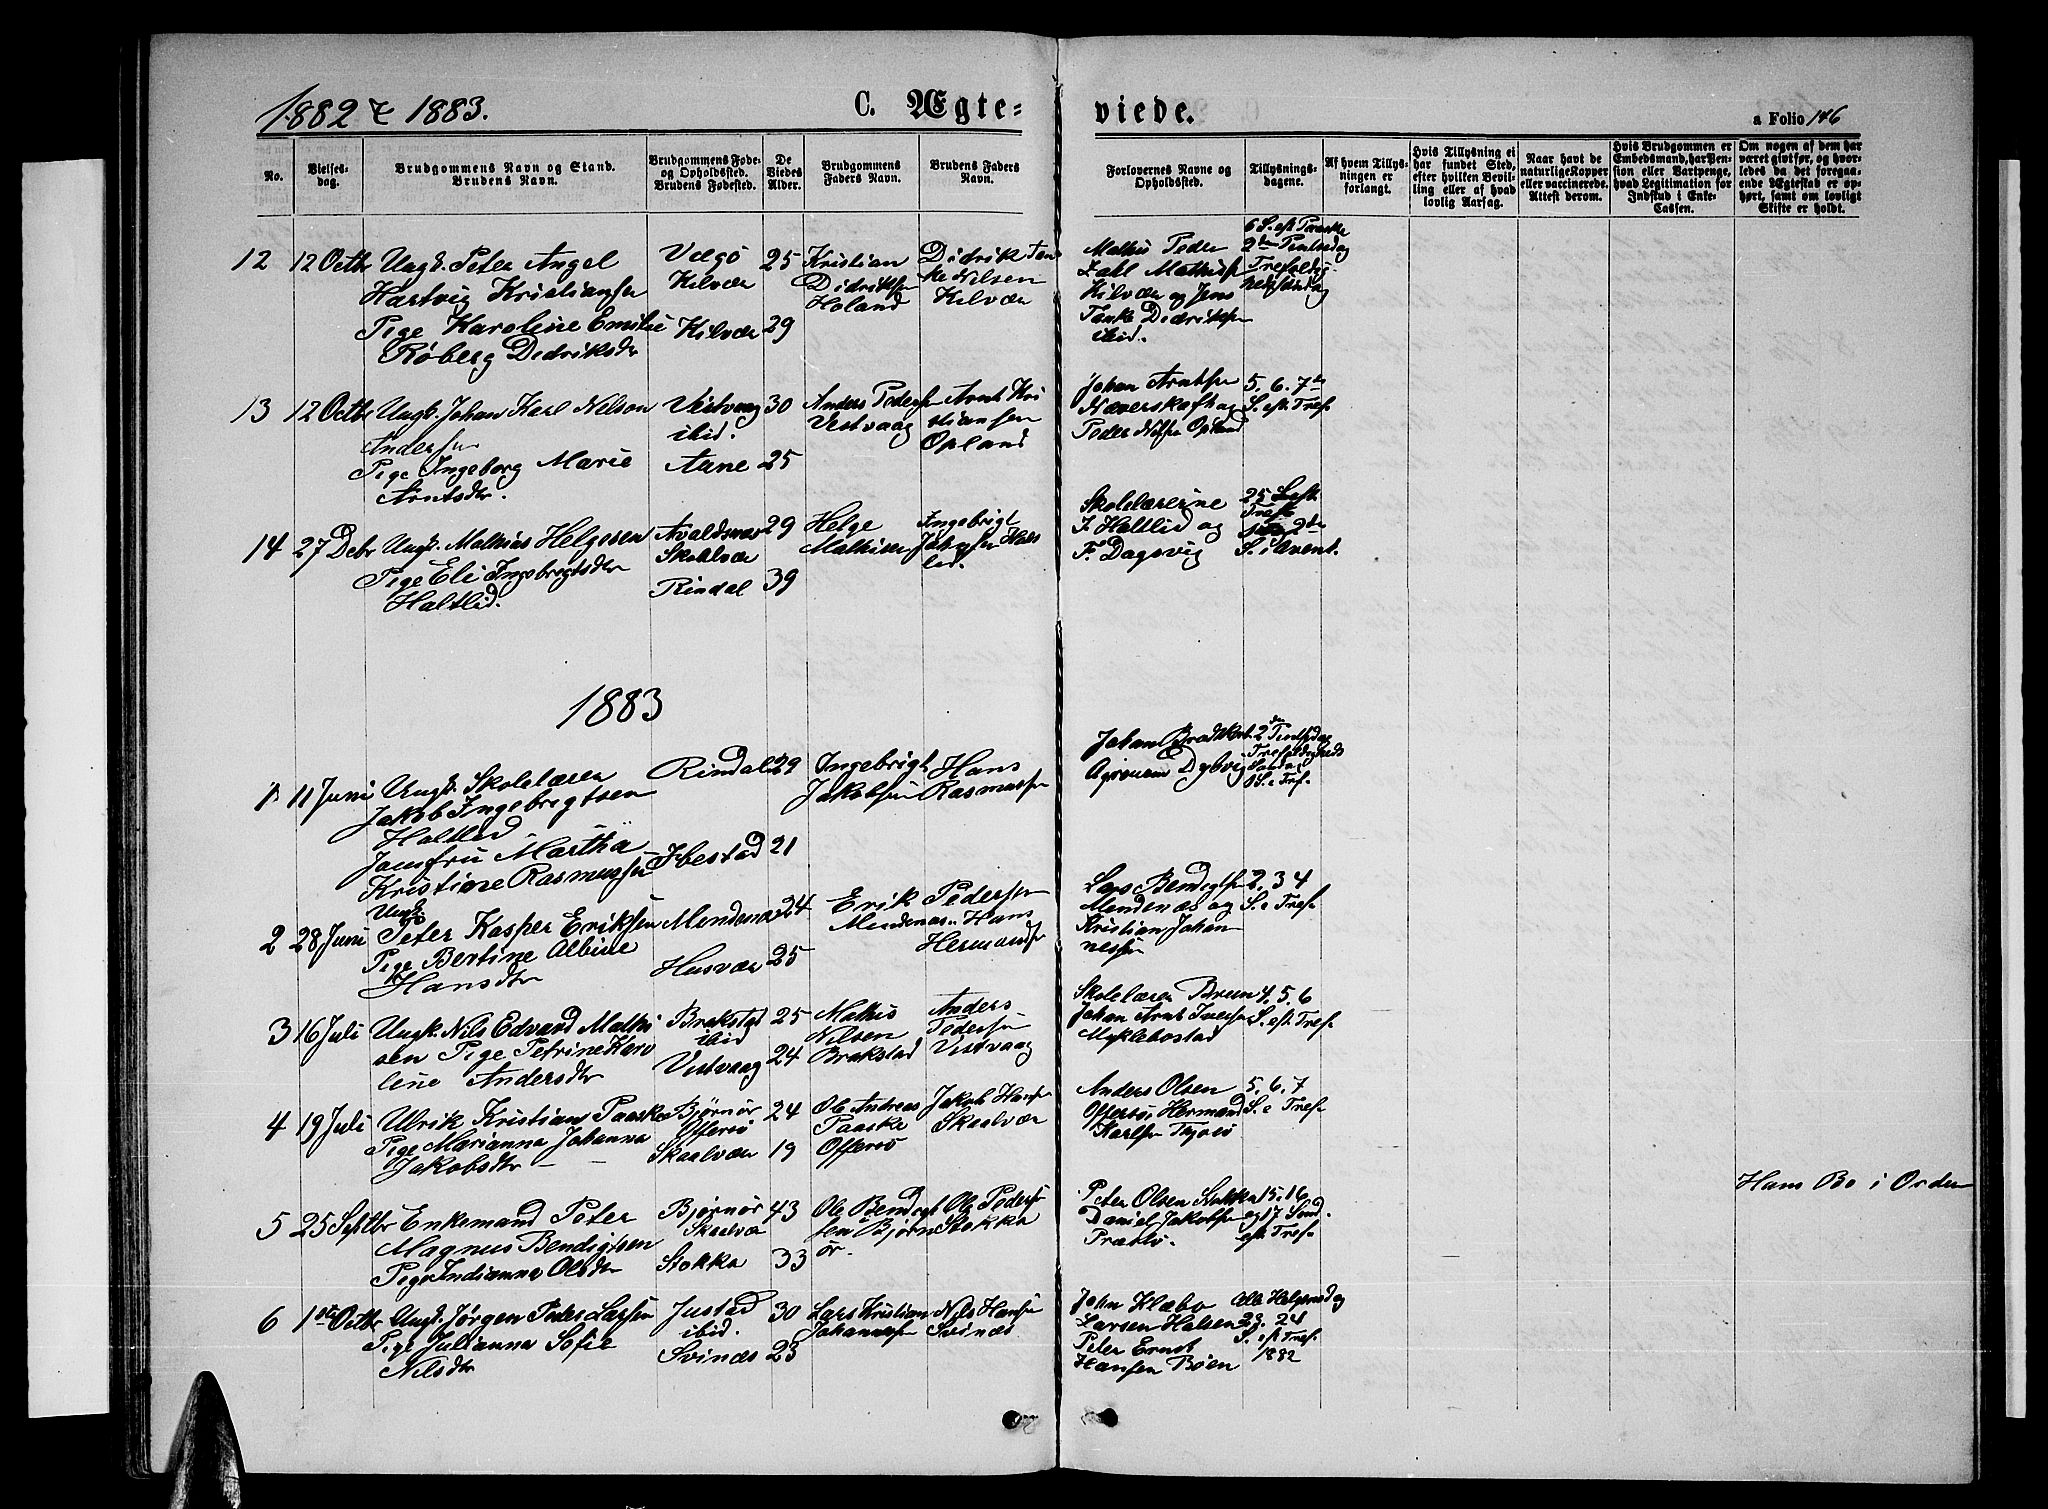 1882 & 1883.
C. Ægte=
viede.
a Folio 146
No.
Vielses=
dag.
Brudgommens Navn og Stand.
Brudens Navn.
Brudgommens Føde-
og Opholdssted.
Brudens Fødested.
De
Viedes
Alder.
Brudgommens
Faders Navn.
Brudens Faders
Navn.
Forlovernes Navne og
Opholdssted.
Tillysnings=
dagene.
Af hvem Tillys-
ningen er
forlangt.
Hvis Tillysning ei
har fundet Sted,
efter hvilken Bevil-
ling eller af hvad
lovlig Aarsag.
Naar havt de
naturlige Kopper
eller vaccinerede.
Attest derom.
Hvis Brudgommen er
Embedsmand, har Pen-
sion eller Vartpenge,
hvad Legitimation for
Indskud i Enke-
Cassen.
Om nogen af dem har
været gift før, og hvor-
ledes da det foregaa-
ende Ægteskab er op-
hørt, samt om lovligt
Skifte er holdt.
12
12 Octbr
Ungk. Peter Angel
Hartvig Kristiansen
Pige Karoline Emilie
Røberg Didriksdtr
Vægø
Kilvær
Kilvær
25
29
Kristian
Didriksen
Holand
Didrik Tan
ke Nilsen
Kilvær
Mathis Peder
Dahl Mathisen
Kilvær og Jens
Tanke Didriksen
ibid.
6 S. eft Paaske
2den Pintsedag
Trefoldig
hedssøndag
13
12 Octbr
Ungk. Johan Karl Nilson
Andersen
Pige Ingeborg Marie
Arntsdtr.
Vestvaag
ibid.
Aune
30
25
Anders Pedersen
Vestvaag
Arnt Kri
stiansen
Opland
Johan Arntsen
Næverskaft og
Peder Nilsen Opland
5. 6. 7de
S. eft. Tref.
14
27 Debr
Ungk. Mathias Helgesen
Pige Eli Ingebrigtsdtr
Haltlid.
Avaldsnæs
Skaalvær
Rindal
29
39
Helge
Mathisen
Ingebrigt
Jakobsen Halt
lid.
Skolelærerne
J. Haltlid og
F. Dagsvig
25 S. eft.
Tref.
2den
S. i Avent.
1883
1
11 Juni
Ungk. Skolelærer
Jakob Ingebrigtsen
Haltlid
Jomfru Martha
Kristiane Rasmussen
Rindal
Ibestad
29
21
Ingebrigt
Jakobsen
Hans
Rasmussen
Johan Brodtkorb
Agronom Dybvig
2den Pintsedag
Trefoldigheds
Søndag
S. e Tref.
2
28 Juni
Ungk.
Peter Kasper Eriksen
Pige Bertine Albine
Hansdtr
Mindenæs
Husvær
24
25
Erik Pedersen
Mindenæs
Hans
Hermansen
Lars Bendigtsen
Mendenæs og
Kristian Johan
nessen
2. 3 4
S. e Tref.
3
16 Juli
Ungk. Nils Edvard Mathi
sen Pige Petrine Karo
line Andersdtr
Brakstad
ibid
Vestvaag
25
24
Mathis
Nilsen
Brakstad
Anders
Pedersen
Vestvaag
Skolelærer Brun
Johan Arnt Iversen
Myklebostad
4. 5. 6
S. eft. Tref.
4
19 Juli
Ulrik Kristian Paaske
Pige Marianna Johanna
Jakobsdtr
Bjørnør
Offersø
Skaalvær
24
19
Ole Andreas
Paaske
Offersø
Jakob Hansen
Skaalvær
Anders Olsen
Offersø, Hermand
Karlsen Tjøtø
5. 6. 7
S. e Tref.
5
25 Septbr
Enkemand Peter
Magnus Bendigtsen
Pige Indianna Olsdtr
Bjørnør
Skaalvær
Stokka
43
33
Ole Bendigt
sen Bjørn
ør.
Ole Pedersen
Stokka
Peter Olsen Stokka
Daniel Jakobsen
Præstø.
15. 16
og 17 Sønd
eft Tref.
Hans Bo i Orden
6
1ste Octbr
Ungk. Jørgen Peder Larsen
Pige Julianna Sofie
Nilsdtr
Justad
ibid.
Svinæs
30
23
Lars Kristian
Johannesen
Nils Hansen
Svinæs
John Klæbo
Larsen Halsen
Peter Ernst
Hansen Bøen
Alle Helgensdag
23. 24
S. eft Tref.
1882